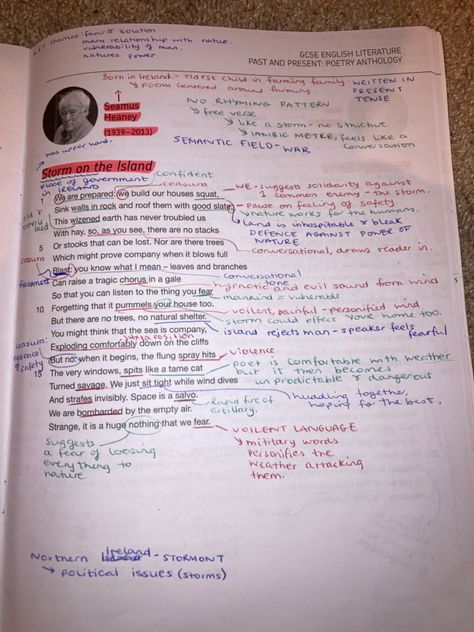 Themes: fear & isolation
mans relationship with nature.
vulnerability of man.
natures power
GCSE ENGLISH LITERATURE
PAST AND PRESENT: POETRY ANTHOLOGY
Born in Ireland - eldest child in farming family
→ poems centered around farming.
WRITTEN IN
PRESENT
TENSE
Seamus
Heaney
(1939–2013)
NO RHYMING PATTERN
→ free verse
→ like a storm - no structure
→ IAMBIC METRE, feels like a
conversation
SEMANTIC FIELD - WAR
has upper hand.
Storm on the Island
place of government
in IRELAND
confident
caesura
We are prepared: we build our houses squat,
WE - suggests solidarity against
1 common enemy - the storm.
Sink walls in rock and roof them with good slate.
- pause on feeling of safety
nature works for the humans.
This wizened earth has never troubled us
land is inhospitable & bleak
DEFENCE AGAINST POWER OF
NATURE
With hay, so, as you see, there are no stacks
5 Or stooks that can be lost. Nor are there trees
conversational, draws reader in.
Which might prove company when it blows full
Blast: you know what I mean – leaves and branches
conversational
tone
Can raise a tragic chorus in a gale
hypnotic and evil sound from wind
So that you can listen to the thing you fear
mankind = vulnerable
10 Forgetting that it pummels your house too.
voilent, painful - personified wind
storm could effect your home too.
But there are no trees, no natural shelter.
You might think that the sea is company,
island rejects man - speaker feels
fearful
Exploding comfortably down on the cliffs
But no: when it begins, the flung spray hits
violence
15 The very windows, spits like a tame cat
poet is comfortable with weather
but it then becomes
unpredictable & dangerous
Turned savage. We just sit tight while wind dives
huddling together,
hoping for the best.
And strafes invisibly. Space is a salvo.
Rapid fire of
artillary.
We are bombarded by the empty air.
Strange, it is a huge nothing that we fear.
VOILENT LANGUAGE
→ military words
personifies the
weather attacking
them.
suggests
a fear of loosing
everything to
nature
Northern Ireland - STORMONT
→ political issues (storms)